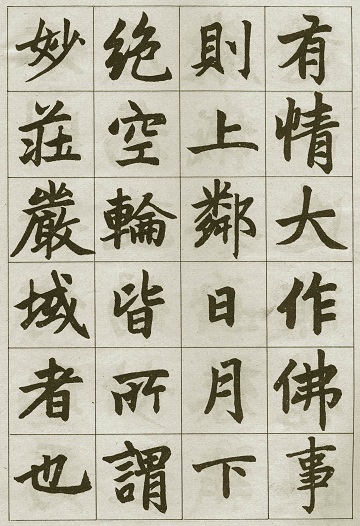 有情大作佛事
則上鄰日月下
絕空輪皆所謂
妙莊嚴域者也